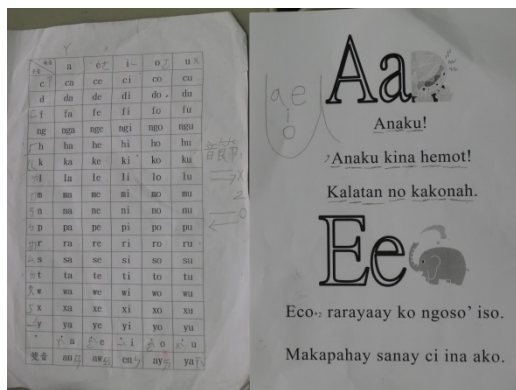 a e i o u
c ca ce ci co cu
d da de di do du
f fa fe fi fo fu
ng nga nge ngi ngo ngu
h ha he hi ho hu
k ka ke ki ko ku
l la le li lo lu
m ma me mi mo mu
n na ne ni no nu
p pa pe pi po pu
r ra re ri ro ru
s sa se si so su
t ta te ti to tu
w wa we wi wo wu
x xa xe xi xo xu
y ya ye yi yo yu
a e i o u
雙音 an aw en ay ya
音節
a e
i
o
Aa
Anaku!
Anaku kina hemot!
Kalatan no kakonah.
Ee
Eco rarayaay ko ngoso' iso.
Makapahay sanay ci ina ako.